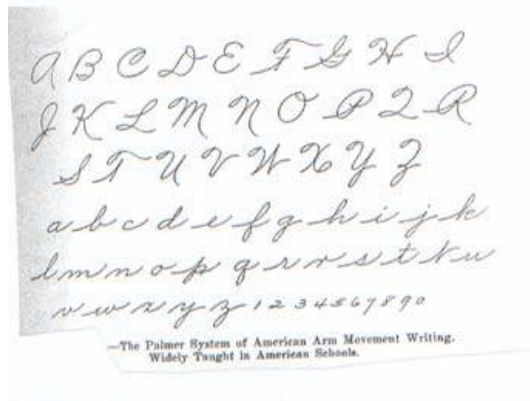 A B C D E F G H I
J K L M N O P Q R
S T U V W X Y Z
a b c d e f g h i j k
l m n o p q r r s t t u
v w x y z 1 2 3 4 5 6 7 8 9 0
—The Palmer System of American Arm Movement Writing.
Widely Taught in American Schools.